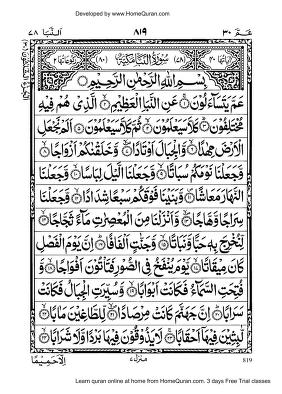 Developed by www.HomeQuran.com
النبا ٧٨
٨١٩
عم ٣٠
سورة النبا مكية
بسم الله الرحمن الرحيم
عم يتساءلون عن النبا العظيم الذي هم فيه
مختلفون كلا سيعلمون ثم كلا سيعلمون الم نجعل
الارض مهدا والجبال اوتادا وخلقنكم ازواجا
وجعلنا نومكم سباتا وجعلنا اليل لباسا وجعلنا
النهار معاشا وبنينا فوقكم سبعا شدادا وجعلنا
سراجا وهاجا وانزلنا من المعصرت ماء ثجاجا
لنخرج به حبا ونباتا وجنت الفافا ان يوم الفصل
كان ميقاتا يوم ينفخ في الصور فتاتون افواجا و
فتحت السماء فكانت ابوابا وسيرت الجبال فكانت
سرابا ان جهنم كانت مرصادا للطاغين مابا
لبثين فيها احقابا لا يذوقون فيها بردا ولا شرابا
الا حميما
منزل ٧
819
Learn quran online at home from HomeQuran.com. 3 days Free Trial classes